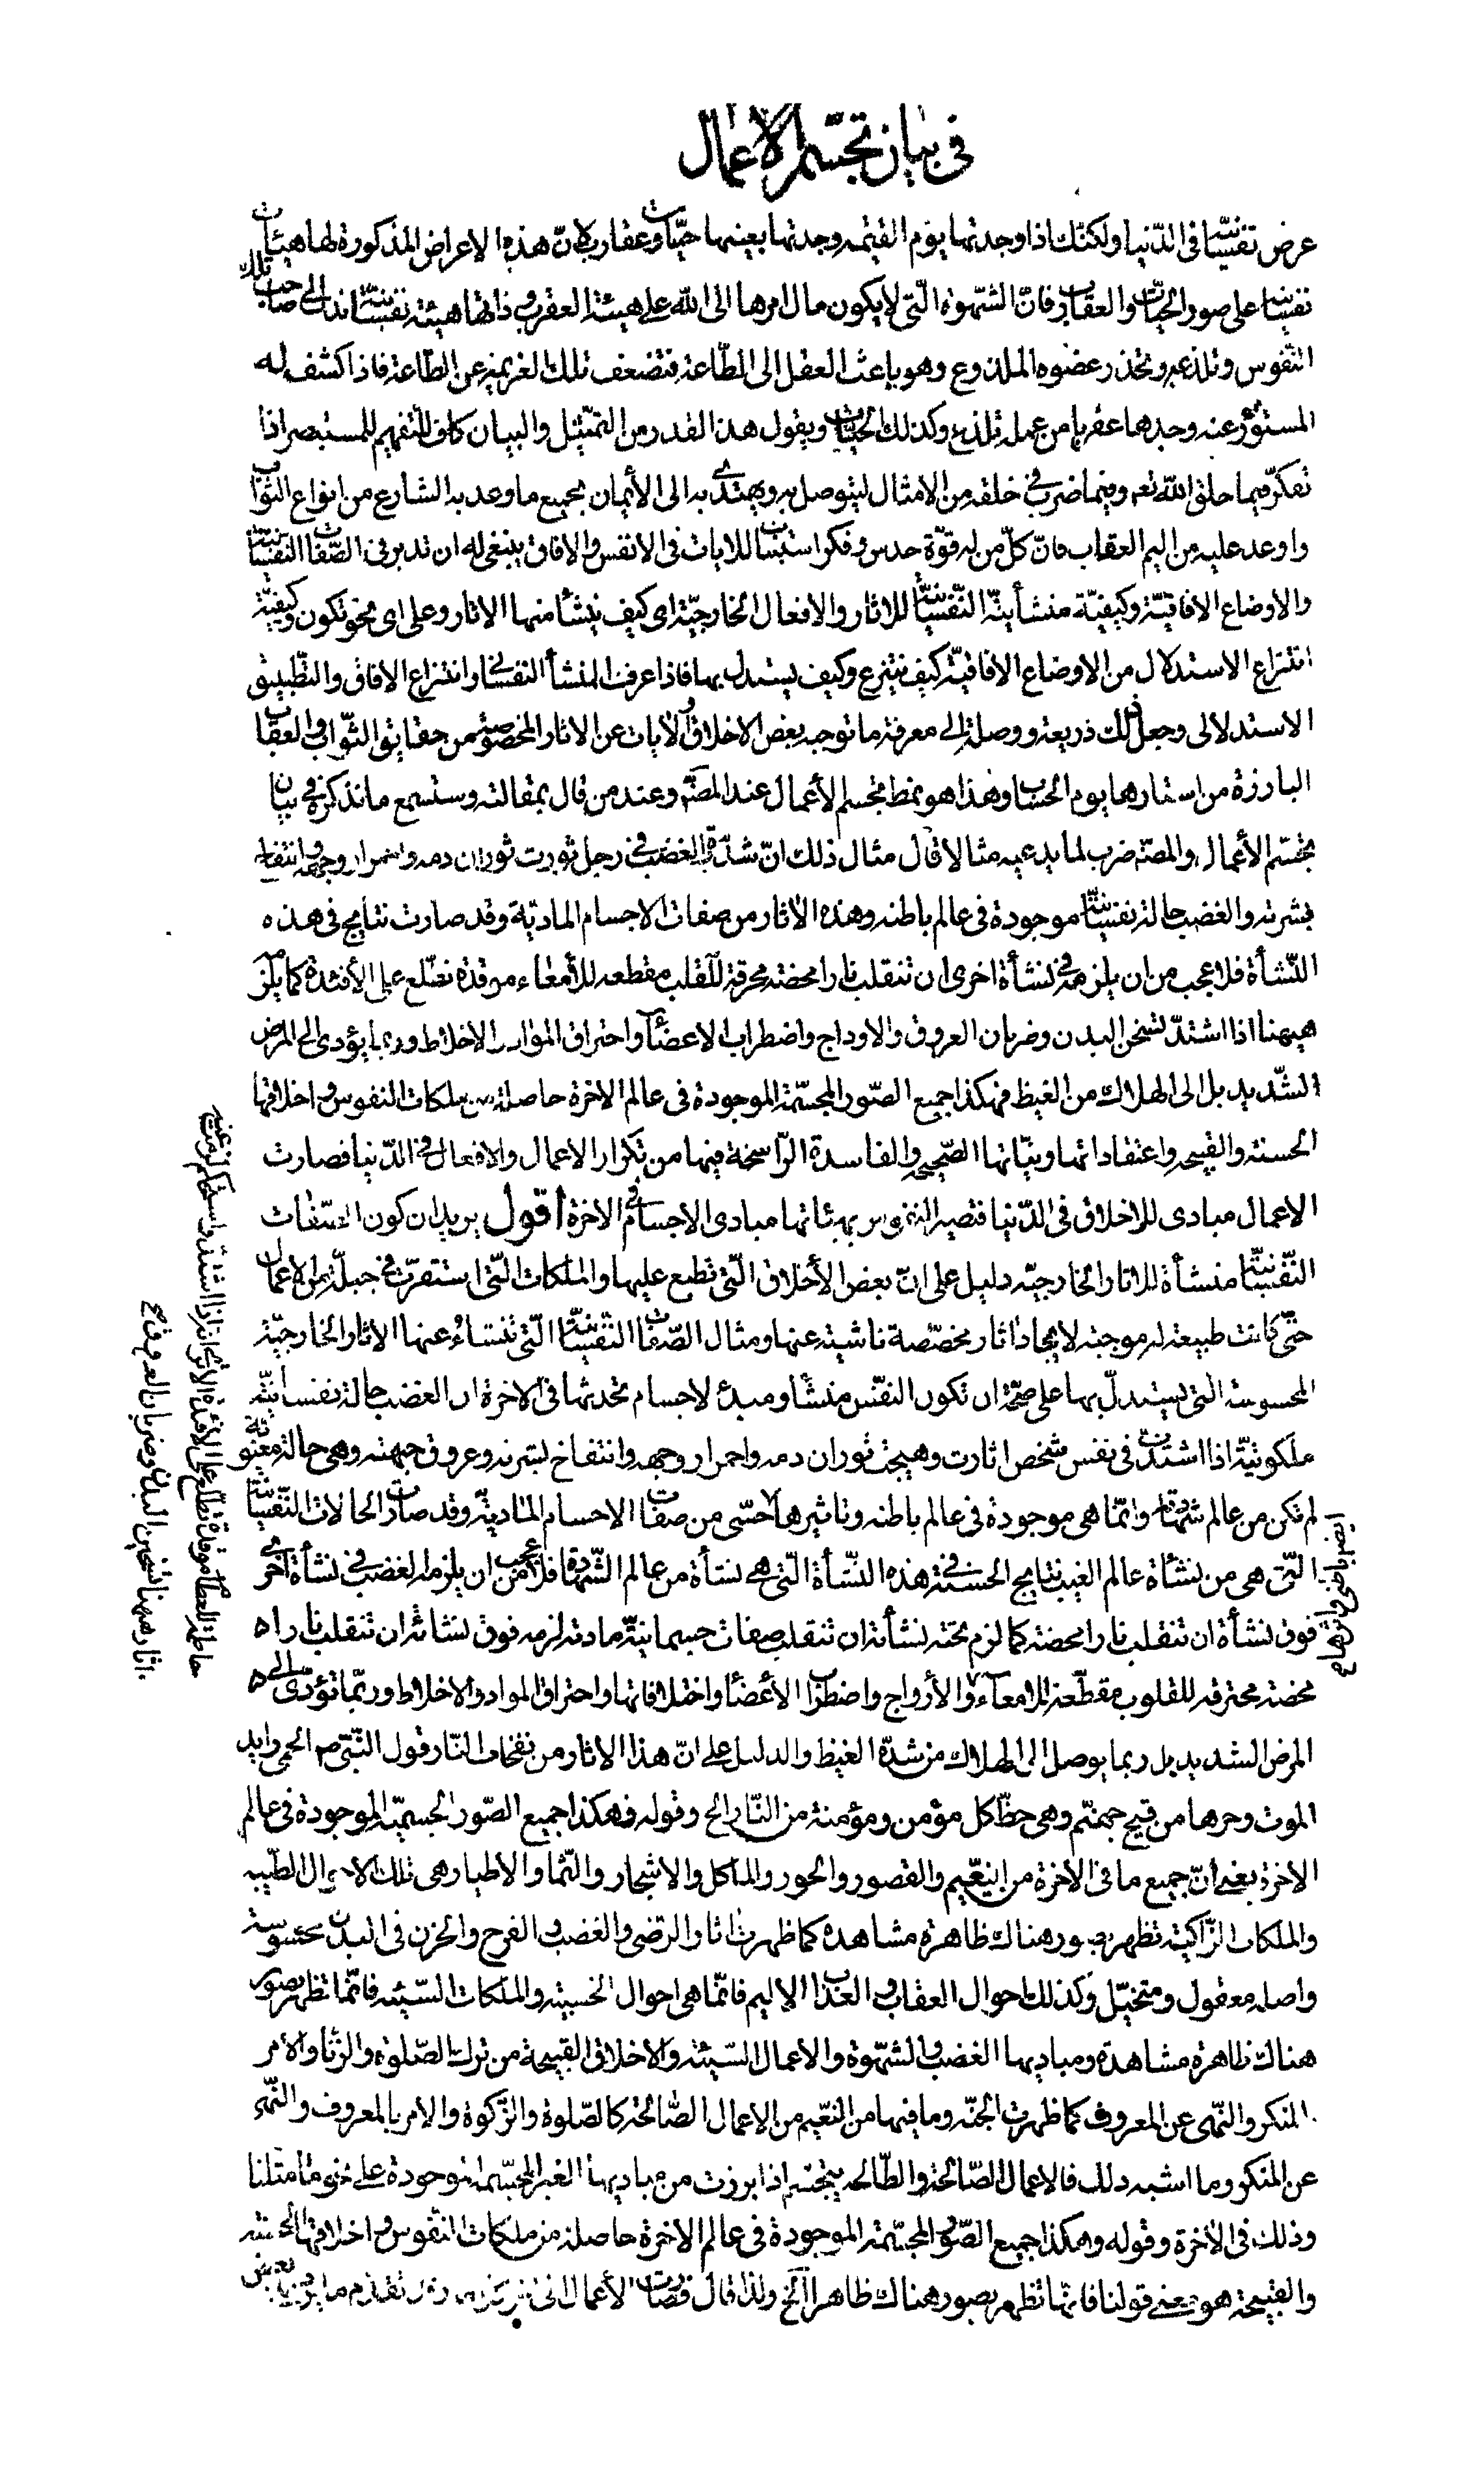 فى بيان تجسّم الأعمال
عرض نفسانيّة فى الدّنيا ولكنّك اذا وجدتها يوم القيٰمة وجدتها بعينها حيّات وعقارب لانّ هذه الاعراض المذكورة لها هيئات
نفسانيّة على صور الحيّات والعقارب فانّ الشّهوة الّتى لا يكون مال امرها الى الله على هيئة العقرب وذاتها هيئة نفسانيّة صاحب تلك
النّفوس وتلذعه وتخذر عضوه الملذوع وهو باعث العقل الى الطّاعة فتضعف تلك الغريمة عن الطّاعة فاذا كشف له
المستور عنه وجدها عقربا من عمله تلذعه وكذلك الحيّات ويقول هذا القدر من التمثيل والبيان كاف للتفهيم للمستبصر اذا
تفكّر فيما خلق الله تعم وفيما ضرب فى خلقه من الامثال ليتوصل به ويهتدى به الى الأيمان بجميع ما وعد به الشارع من انواع الثواب
واوعد عليه من اليم العقاب فانّ كلّ من له قوّة حدس وفكر استبيان للايات فى الانفس والافاق ينبغى له ان تدبر فى الصّفات النّفسانيّة
والاوضاع الافاقيّة وكيفيّة منشأيّة النّفسانيّة للاثار والافعال الخارجيّة اى كيف ينشأ منها الاثار وعلى اى نحو تكون وكيفيّة
انتزاع الاستدلال من الاوضاع الافاقيّة كيف ينتزع وكيف يستدل بها فاذا عرف المنشأ النفسانى وانتزاع الافاق والتّطبيق
الاستدلالى وجعل ذلك ذريعة ووصلة الى معرفة ما توجبه بعض الاخلاق والايات عن الاثار المخصوصة من حقايق الثّواب والعقاب
البارزة من استارها يوم الحساب وهذا هو نمط تجسم الأعمال عند المصنّف وعند من قال بمقالته وستسمع ما نذكره فى بيان
تجسّم الأعمال والمصنّف ضرب لما يدعيه مثالا قال مثال ذلك انّ شدّة الغضب فى رجل ثورت ثوران دمه واحمرار وجهه وانتفاخ
بشرته والغضب حالة نفسانيّة موجودة فى عالم باطنه وهذه الاثار من صفات الاجسام الماديّة وقد صارت نتايج فى هذه
النّشأة فلا عجب من ان يلزمه فى نشأة اخرى ان تنقلب نارا محضة محرقة للقلب مقطعه للأمعاء موقدة تطّلع على الأفئدة كما يلزم
هيهنا اذا اشتدّ تسخن البدن وضربان العروق والاوداج واضطراب الاعضاء واحتراق المواد والاخلاط وربما يؤدى الى المرض
الشّديد بل الى الهلاك من الغيظ فهكذا جميع الصّور المجسّمة الموجودة فى عالم الاخرة حاصلة من ملكات النفوس واخلاقها
الحسنة والقبيحه واعتقاداتها ونيّاتها الصّحيحه والفاسدة الرّاسخة فيها من تكرار الاعمال والافعال فى الدّنيا فصارت
الاعمال مبادى للاخلاق فى الدّنيا فتصير النفوس بهيئاتها مبادى الاجسام فى الاخرة اقول يريد ان كون الصّفات
النّفسانيّة منشأة للاثار الخارجيّه دليل على انّ بعض الأخلاق الّتى تطبع عليها والملكات الّتى استقرّت فى جبلّته من الاعمال
حتّى كانت طبيعة له موجبة لايجاد اثار مخصّصة ناشية عنها ومثال الصّفات النّفسانيّة الّتى تنشأ عنها الاثار الخارجيّة
المحسوسة التى يستدلّ بها على صحّة ان تكون النفس منشأ ومبدء لاجسام تحدثها فى الاخرة ان الغضب حالة نفسانيّة
ملكوتيّة اذا اشتدّت فى نفس شخص اثارت وهيجت ثوران دمه واحمرار وجهه وانتفاخ بشرته وعروق جبهته وهى حالة معنويّة
لم تكن من عالم شهادة وانّما هى موجودة فى عالم باطنه وتاثيرها حسّى من صفات الاجسام الماديّة وقد صارت الحالات النّفسانيّة
الّتى هى من نشأة عالم الغيب نتايج الحسنة فى هذه النّشأة الّتى هى نشأة من عالم الشّهادة فلا عجب من ان يلزم الغضب فى نشأة اخرى
فوق نشأة ان تنقلب نارا محضة كما لزم تحته نشأته ان تنقلب صفات جسمانيّة مادة لزمه فوق نشائه ان تنقلب نارا
محضة محترقه للقلوب مقطّعة للامعاء والأرواح واضطراب الأعضاء واختلافاتها واحتراق المواد والاخلاط وربّما تؤدّى الى
المرض الشديد بل ربما يوصل الى الهلاك من شدّة الغيظ والدليل على انّ هذا الاثار من نفخات النّار قول النّبى ص الحمى رايد
الموت وحرها من قيح جهنّم وهى حظّ كل مؤمن ومؤمنة من النّار الخ وقوله فهكذا جميع الصّور الجسميّة الموجودة فى عالم
الاخرة يعنى انّ جميع ما فى الاخرة من النّعيم والقصور والحور والماكل والاشجار والثّمار والاطيار هى تلك الاحوال الطّيبه
والملكات الزّاكية تظهر بصور هناك ظاهرة مشاهده كما ظهرت اثار الرّضى والغضب والفرح والحزن فى البدن محسوسة
واصله معقول ومتخيّل وكذلك احوال العقاب والعذاب الاليم فانّما هى احوال الخبيثه والملكات السّيئه فانّما تظهر بصور
هناك ظاهرة مشاهدة ومباديها الغضب والشهوة والاعمال السّيئة والاخلاق القبيحة من ترك الصّلوة والزّنا والامر
بالمنكر والنّهى عن المعروف كما ظهرت الجنّة وما فيها من النّعيم من الاعمال الصّالحة كالصّلوة والزّكوة والامر بالمعروف والنّهى
عن المنكر وما اشبه ذلك فالاعمال الصّالحة والطّالحه يتجسّم اذا برزت من مباديها الغير المجسّمة الموجودة على نحو ما مثّلنا
وذلك فى الاخرة وقوله وهكذا جميع الصّور المجسّمة الموجودة فى عالم الاخرة حاصلة من ملكات النّفوس واخلاقها الحسنة
والقبيحة هو معنى قولنا فانّها تظهر بصور هناك ظاهرا الخ ولذا قال فصارت الأعمال تقدّم ما بعض
اثار هيهنا تسخين البدن وضربان العروق